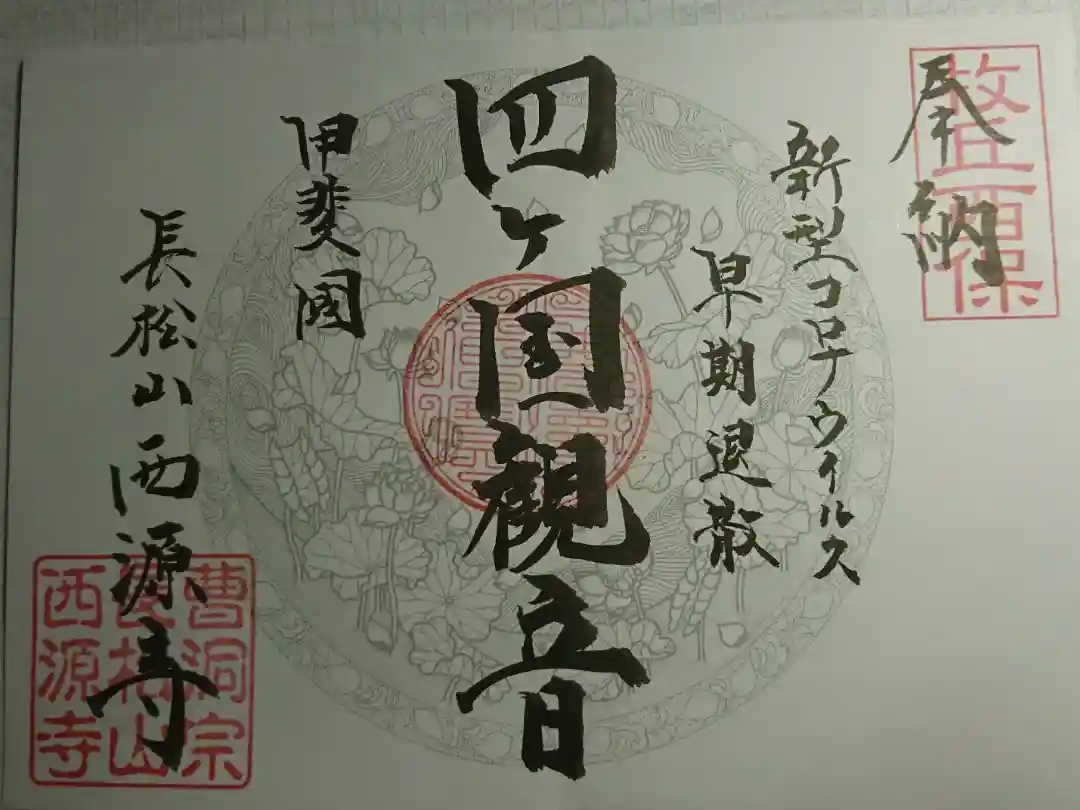 牧丘西保
奉納
新型コロナウイルス
早期退散
四ヶ国観音
甲斐國
長松山西源寺
曹洞宗
長松山
西源寺